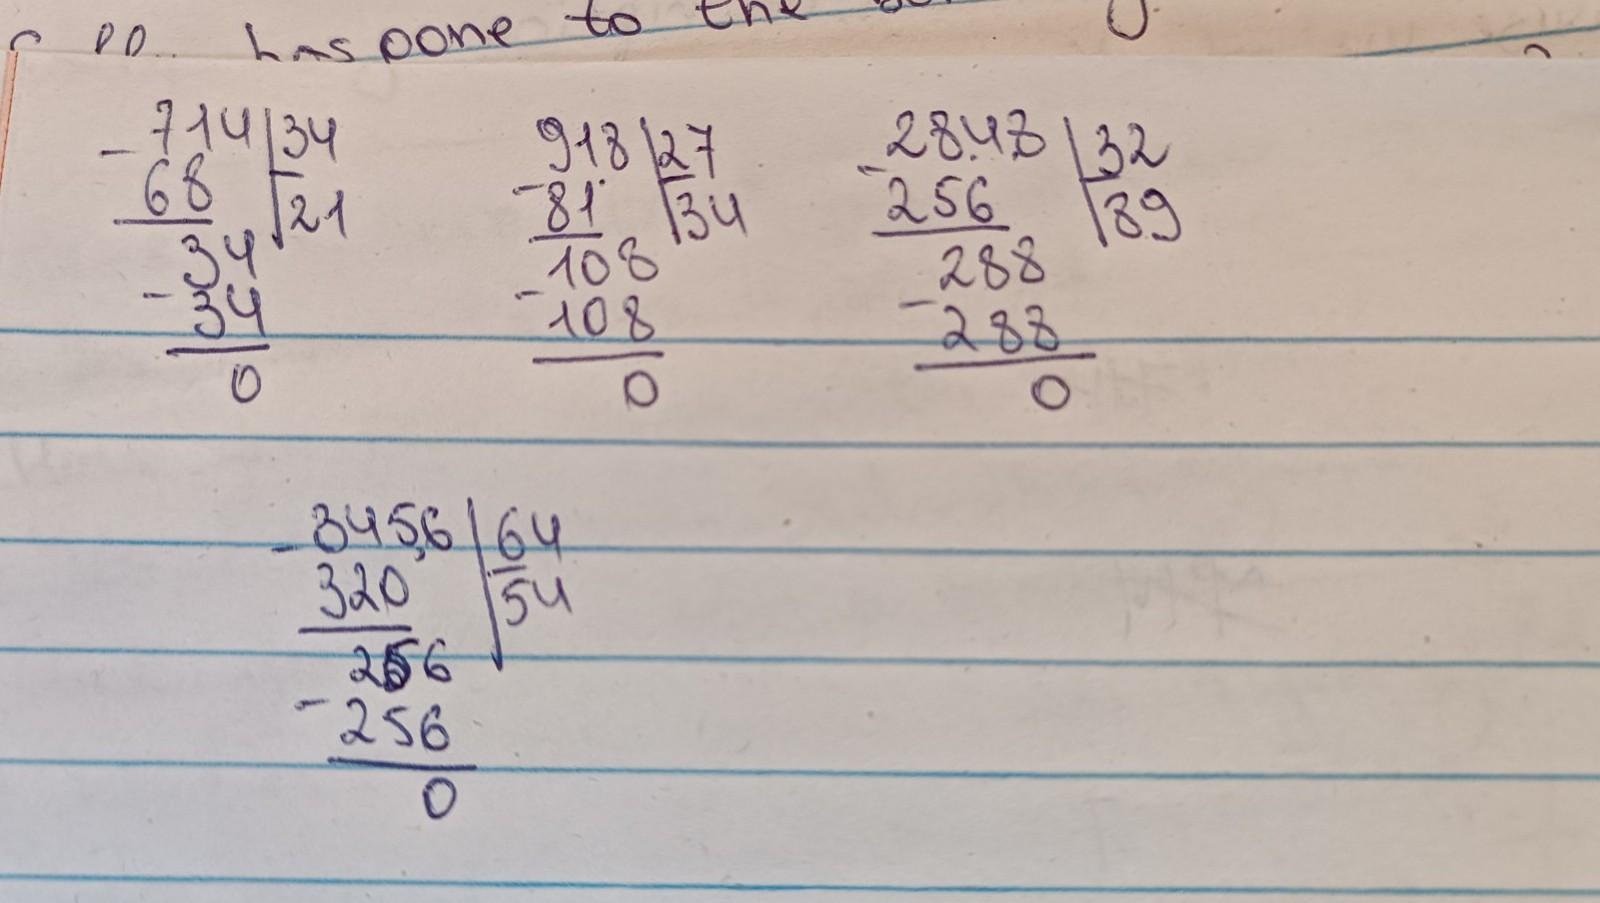 has done to the
714 34
- 68 21
34
- 34
0
918 27
- 81 34
108
- 108
0
2848 32
- 256 89
288
- 288
0
3456 64
- 320 54
256
- 256
0